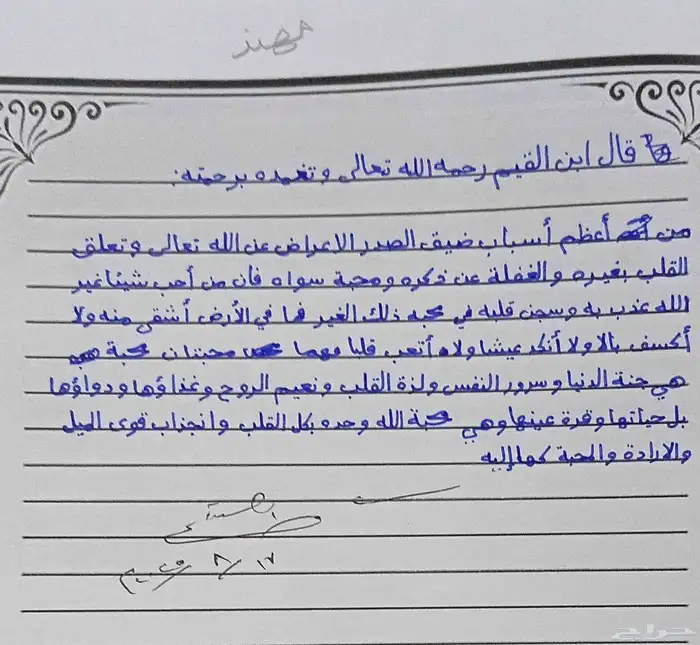 مهند
قال ابن القيم رحمه الله تعالى وتغمده برحمته:
من أعظم أسباب ضيق الصدر الاعراض عن الله تعالى وتعلق
القلب بغيره والغفلة عن ذكره ومحبة سواه فان من أحب شيئا غير
الله عذب به وسجن قلبه في محبه ذلك الغير فما في الأرض أشقى منه ولا
أكسف بالا ولا أنكد عيشا ولا أتعب قلبا مهما محبتان محبة
هي جنة الدنيا وسرور النفس ولذة القلب ونعيم الروح وغذاؤها ودواؤها
بل حياتها وقرة عينها وهي محبة الله وحده بكل القلب وانجذاب قوى الميل
والارادة والمحبة كلها إليه
١٧ / ٨
حراج